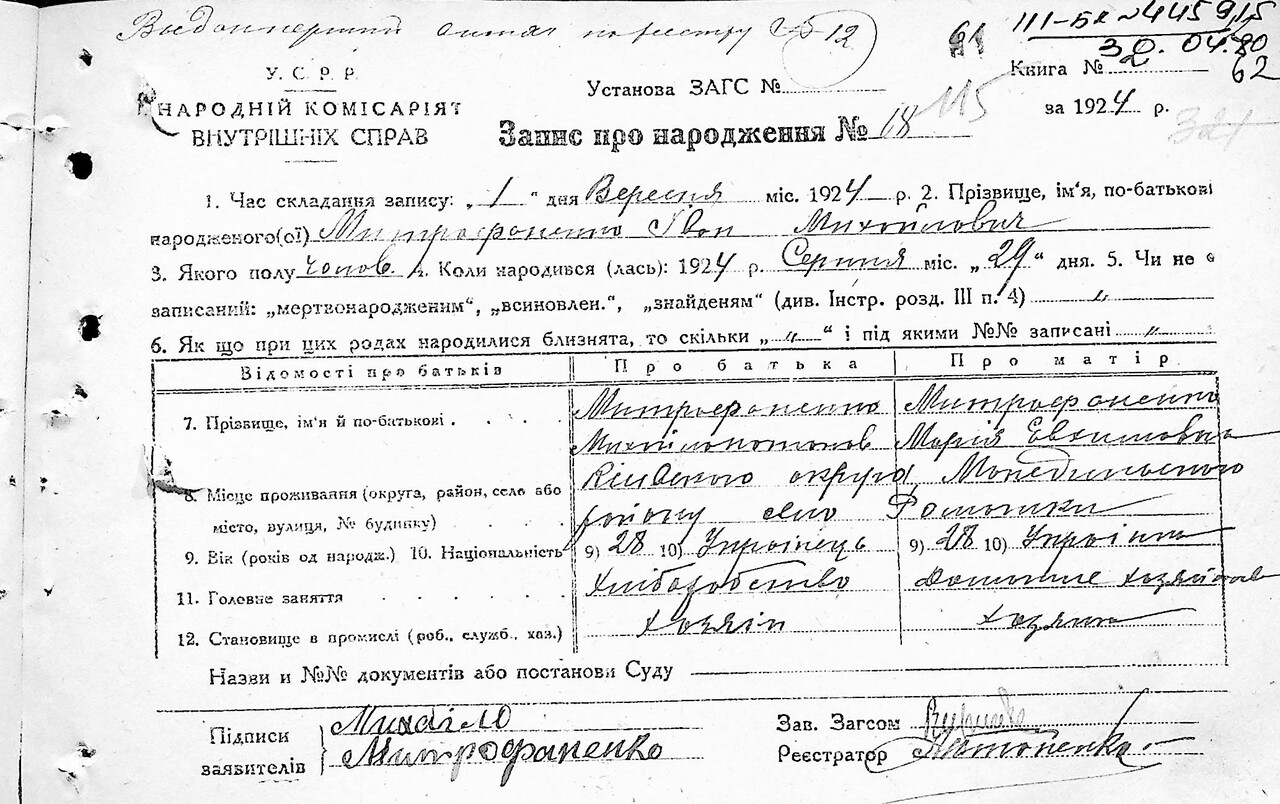 III-БК №445915
30.04.80
62
У.С.Р.Р.
НАРОДНІЙ КОМІСАРІЯТ
ВНУТРІШНІХ СПРАВ
Установа ЗАГС №
Книга № 2
за 1924 р.
115
Запис про народження № 18
1. Час складання запису: „1" дня Вересня міс. 1924 р. 2. Прізвище, ім'я, по-батькові
народженого(ої) Митрофаненко Іван Михайлович
3. Якого полу чолов. 4. Коли народився (лась): 1924 р. Серпня міс. „29" дня. 5. Чи не є
записаний: „мертвонародженим", „всиновлен.", „знайденям" (див. Інстр. розд. III п. 4) „
6. Як що при цих родах народилися близнята, то скільки „ „ " і під якими №№ записані „
Відомості про батьків Про батька Про матір
7. Прізвище, ім'я й по-батькові . . . . Митрофаненко Митрофаненко
Марія
8. Місце проживання (округа, район, село або Київского округа
місто, вулиця, № будинку) . . . . району село
9. Вік (років од народж.) 10. Національність 9) 28 10) Українець 9) 28 10) Українка
11. Головне заняття . . . . . . Хліборобство Домашнє
12. Становище в промислі (роб., служб., хаз.) Хозяін
Назви и №№ документів або постанови Суду
Підписи заявителів Михаіло Митрофаненко
Зав. Загсом
Реєстратор Антоненко